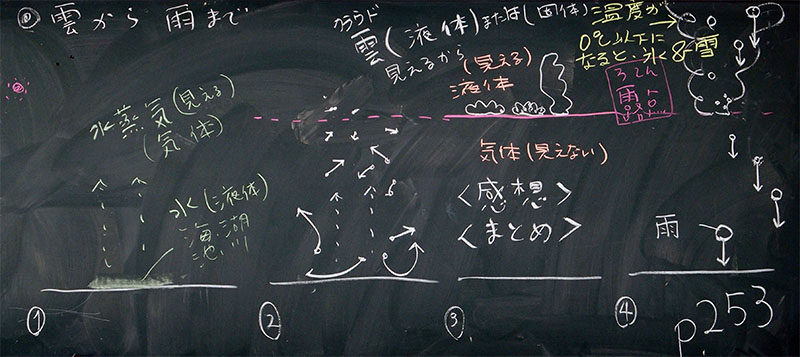 雲から 雨まで
クラウド
雲(液体)または(固体)
見えるから
温度が
0℃以下に
なると、氷&雪
(見える)
液体
ろてん
露点
水蒸気(見える)
(気体)
水(液体)
海、湖
池、川
気体(見えない)
<感想>
<まとめ>
雨
①
②
③
④
p.253